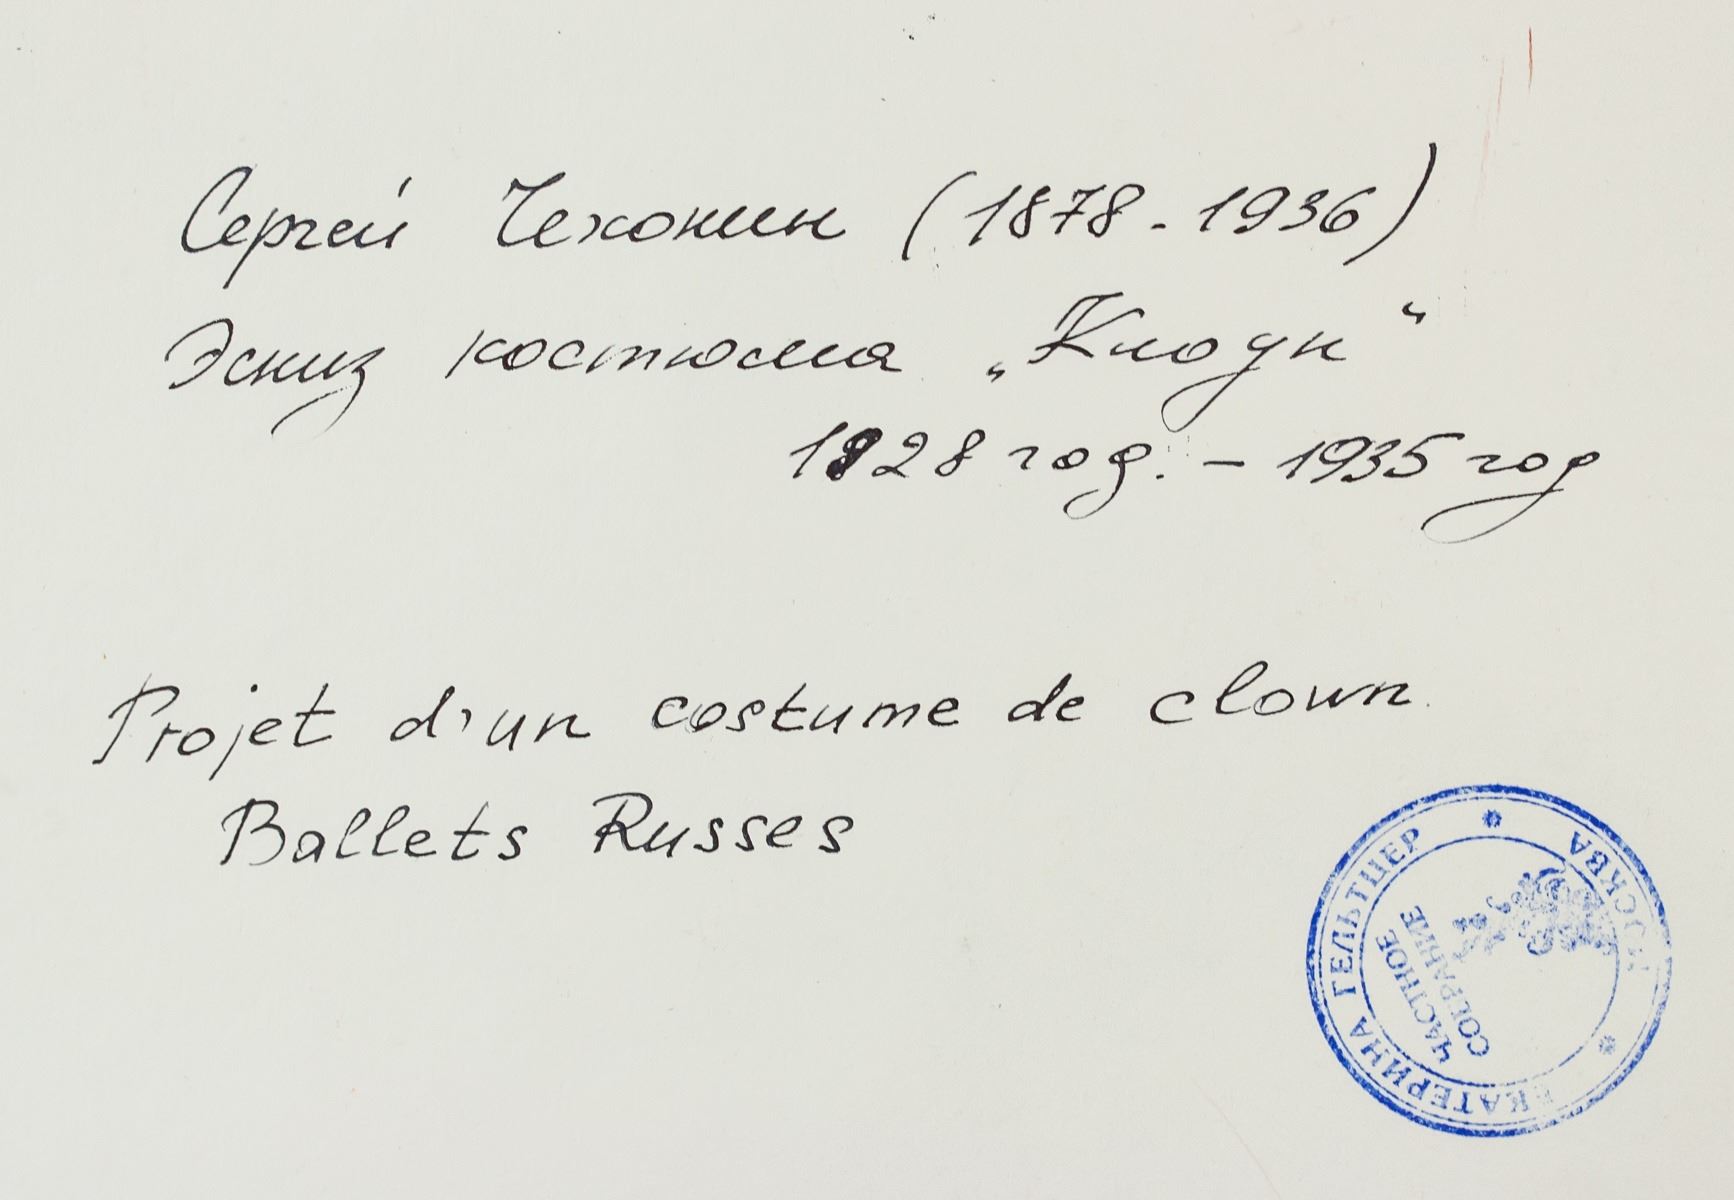 Сергей Чехонин (1878-1936)
Эскиз костюма „Клоун“
1928 год. – 1935 год
Projet d'un costume de clown.
Ballets Russes
ЕКАТЕРИНА ГЕЛЬТЦЕР
МОСКВА
ЧАСТНОЕ
СОБРАНИЕ